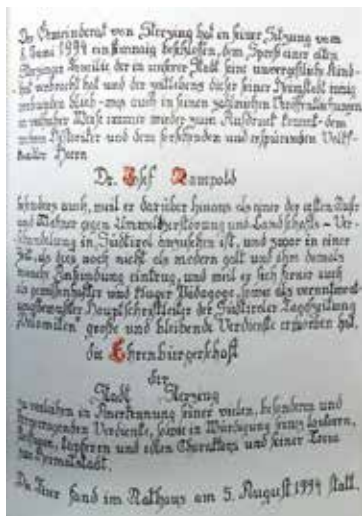 Der Gemeinderat von Sterzing hat in seiner Sitzung vom
Juni 1994 einstimmig beschlossen, dem Sproß einer alten
Sterzinger Familie der in unserer Stadt seine unvergeßliche Kind-
heit verbracht hat und der zeitlebens dieser seiner Heimatstadt innig
verbunden blieb - was auch in seinen zahlreichen Veröffentlichungen
in Weise immer wieder zum Ausdruck kommt - dem
Historiker und dem forschenden und Volks-
Herrn
Dr. Josef Rampold
besonders auch, weil er darüber hinaus als einer der ersten Rufer
und Mahner gegen Umweltzerstörung und Landschafts - Ver-
schandelung in Südtirol anzusehen ist, und zwar in einer
Zeit, als dies noch nicht als modern galt und ihm damals
manche Anfeindung eintrug, und weil er sich ferner auch
als gewissenhafter und kluger Pädagoge, sowie als verantwor-
tungsbewußter Hauptschriftleiter der Südtiroler Tageszeitung
"Dolomiten" große und bleibende Verdienste erworben hat,
die Ehrenbürgerschaft
der
Stadt Sterzing
zu verleihen in Anerkennung seiner vielen, besonderen und
hervorragenden Verdienste, sowie in Würdigung seines lauteren,
tapferen und edlen Charakters und seiner Treue
zur Heimatstadt.
Die Feier fand im Rathaus am 5. August 1994 statt.